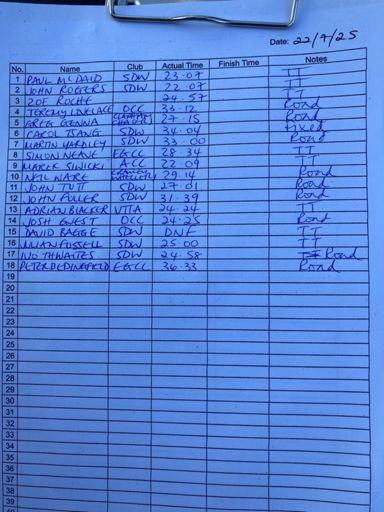 Date: 22/7/25
No. Name Club Actual Time Finish Time Notes
1 PAUL McDAID SDW 23.07 TT
2 JOHN ROGERS SDW 22 07 TT
3 ZOE ROCHE 24.57 TT
4 TEREMY LOVELACE DCC 33.12 Road
5 GREG GENNA 27.15 Road
6 CAROL TSANG SDW 34.04 Fixed
7 MARTIN YARDLEY SDW 33.00 Road
8 SIMON NEAVE EGCC 28 34 TT
9 MAREK SINICKI ACC 22 09 TT
10 NEIL WARE 29.14 Road
11 JOHN TUTT SDW 27 01 Road
12 JOHN FULLER SDW 31.39 Road
13 ADRIAN BLACKER VTTA 24.24 TT
14 JOSH GUEST DCC 24.25 Road
15 DAVID BAGGE SDW DNF TT
16 JULIAN FUSSELL SDW 25.00 TT
17 IVO THWAITES SDW 24.58 Road
18 PETER BEDINGFIELD EGCC 36.33 Road
19
20
21
22
23
24
25
26
27
28
29
30
31
32
33
34
35
36
37
38
39
40